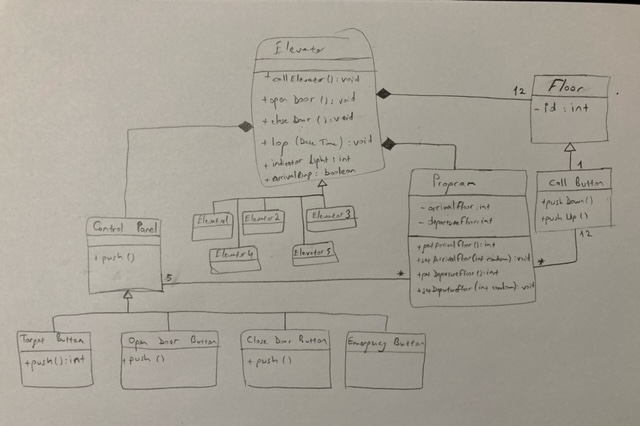 Elevator
+callElevator(): void
+open Door (): void
+close Door (): void
+ Log (Date Time): void
+indicator Light: int
Floor
- id: int
12
1
Call Button
+push Down()
+push Up()
12
Program
- arrivalFloor: int
- departureFloor: int
+getArrivalFloor(): int
+setArrivalFloor(int random): void
+get DepartureFloor(): int
+setDepartureFloor(int random): void
*
*
Elevator1
Elevator2
Elevator 3
Elevator4
Elevator5
Control Panel
+push()
5
Target Button
+push(): int
Open Door Button
+push()
Close Door Button
+push()
Emergency Button